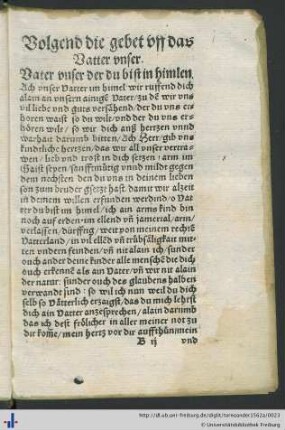 Volgend die gebet vff das
Vatter vnser.
Vater vnser der du bist in himlen.
Ach vnser Vatter im himel wir rüffend dich
alain an vnsern ainigē Vater / zu dē wir vns
vil liebe vnd guts versähend / der du vns er-
hören waist so du wilt / vnd der du vns er-
hören wilt / so wir dich auß hertzen vnnd
warhait darumb bitten / Ach Herr gib vns
kindtliche hertzen / das wir all vnser vertra-
wen / lieb vnd trost in dich setzen / arm im
Gaist seyen / sanfftmütig vnnd milt gegen
dem nechsten / den du vns in deinem lieben
son zum bruder gsetzt hast damit wir alzeit
in deinem willen erfunden werdind / o Vat
ter du bist im himel / ich ain arms kind bin
noch auf erden / im ellend vn̄ jamerial / arm /
verlassen / dürfftig / weit von meinem rechtē
Vatterland / in vil ellēd vn̄ trübsäligkait mit-
ten vndern feinden / vn̄ nit alain ich / sunder
ouch ander deine kinder alle menschē die dich
ouch erkennē als ain Vatter / vn̄ wir nit alain
der natur: sunder ouch des glaubens halben
verwandt sind: so wil ich nun weil du dich
selb so Vätterlich erzaigst / das du mich lehrst
dich ain Vatter anzesprechen / alain darumb
das ich dest frölicher in aller meiner not zu
dir kom̄e / mein hertz vor dir auffthün / mein
B ij vnd
http://dl.ub.uni-freiburg.de/diglit/tareoander1562a/0023
© Universitätsbibliothek Freiburg